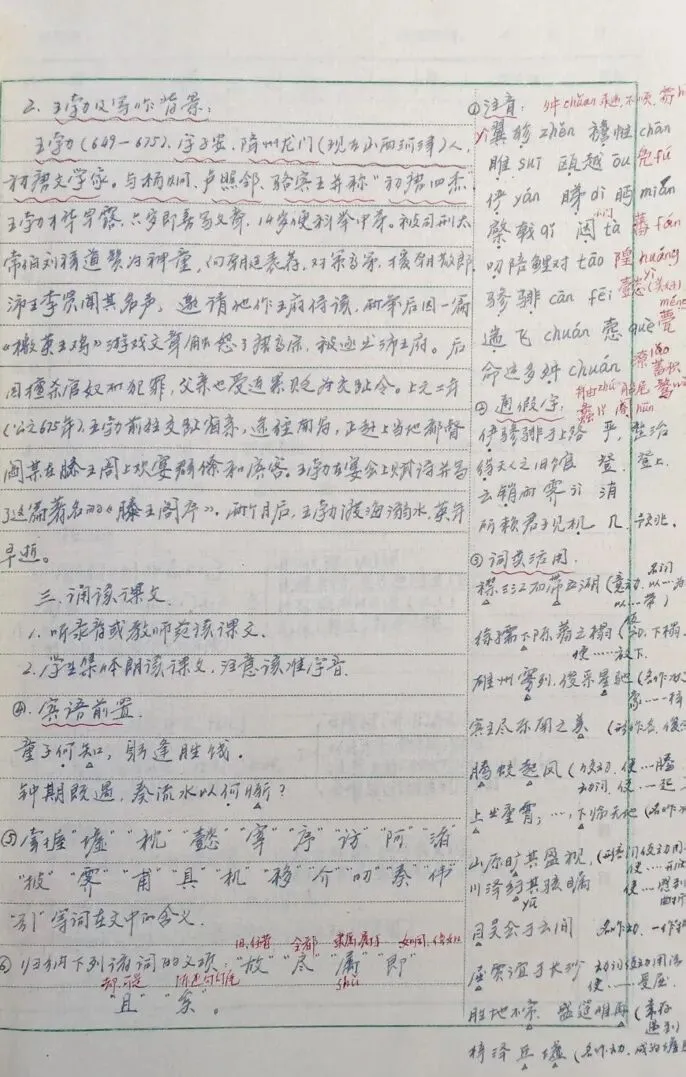 2. 王勃及写作背景:
王勃(649—675), 字子安, 绛州龙门(现在山西河津)人,
初唐文学家。与杨炯、卢照邻、骆宾王并称"初唐四杰"
王勃才华早露, 六岁即善写文章, 14岁便科举中第。被司刑太
常伯刘祥道赞为神童, 向朝廷表荐, 对策高第, 授朝散郎
沛王李贤闻其名声, 邀请他作王府侍读, 两年后因一篇
《檄英王鸡》游戏文章触怒了唐高宗, 被逐出沛王府。后
因擅杀官奴而犯罪, 父亲也受连累贬为交趾令。上元二年
(公元675年), 王勃前往交趾省亲, 途径南昌, 正赶上当地都督
阎某在滕王阁上欢宴群僚和宾客。王勃在宴会上赋诗并写
了这篇著名的《滕王阁序》。两个月后, 王勃渡海溺水, 英年
早逝。
三. 诵读课文
1. 听录音或教师范读课文.
2. 学生集体朗读课文, 注意读准字音.
④. 宾语前置.
童子何知, 躬逢胜饯。
钟期既遇, 奏流水以何惭?
⑤掌握"墟""枕""懿""宰""序""访""阿""渚"
"被""霁""甫""具""机""移""介""叨""奏""伟"
"引"等词在文中的含义.
旧, 全都 隶属,属于 如同,
⑥归纳下列诸词的义项: "故""尽""属""即"
shǔ
"且""矣"。
①注音: 舛 chuǎn 不顺,
翼轸 zhěn 襜帷 chān
睢 suī 瓯越 ōu 凫 fú
伊 yán 睇 dì 眄 miǎn
棨戟 qǐ 闼 tà 蕃 fán
叨陪鲤对 tāo 隍 huáng
骖騑 cān fēi 懿 yì
遄飞 chuán 悫 què 甍 méng
命途多舛 chuǎn 潦 lǎo
②通假字:
俨骖騑于上路 严, 整治
得天人之旧馆 登, 登上
云销雨霁 jì 消
所赖君子见机 几,
③词类活用.
襟三江而带五湖 (意动, 以…为
以…带)
徐孺下陈蕃之榻 (使动, 下榻.
使…放下.
雄州雾列, 俊采星驰 (名作状
像……一样
宾主尽东南之美 (形作名,
腾蛟起风 (使动, 使…腾
动词, 使…起
上出重霄, …, 下临无地 (名作状
山原旷其盈视, (形容词使动用
川泽纡其骇瞩
yū
目吴会于云间 名作动,
屈贾谊于长沙 动词使动用法
使……受屈.
胜地不常, 盛筵难再 (
遇到
梓泽丘墟 (名作动, 成为墟